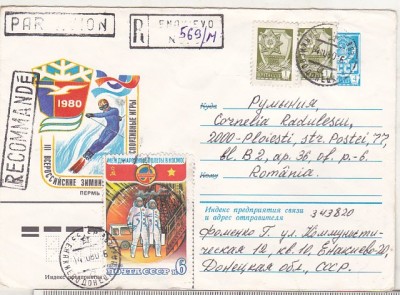 PAR AVION
R
ЕНАКИЕВО
N
569/м
RECOMMANDÉ
1980
III ВСЕРОССИЙСКИЕ ЗИМНИЕ СПОРТИВНЫЕ ИГРЫ
ПЕРМЬ
СССР
Куда
Румыния,
Кому
Cornelia Radulescu,
2000-Ploiesti, str. Postei, 77,
bl. B2, ap. 36, of. p.-6.
România.
МЕЖДУНАРОДНЫЕ ПОЛЕТЫ В КОСМОС
ПОЧТА СССР
6
Индекс предприятия связи
и адрес отправителя
343820
Фоменко Г. ул. Коммунисти-
ческая 12, кв. 10, Енакиево-20,
Донецкая обл., СССР.